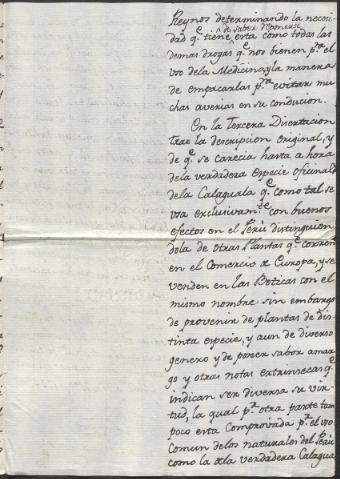 Reynos determinando la neces-
dad q.e tiene de saber disponerse
esta como todas las
demas drogas q.e nos bienen p.a el
uso dela Medicina, y la manera
de empacarlas p.a evitar mu
chas averias en su conducion.
En la Tercera Disertacion
trae la descripcion original, y
de q.e se carecia hasta a hora
dela verdadera especie oficinal
dela Calaguala q.e como tal se
usa exclusivam.te con buenos
efectos en el Perú distinguien
dola de otras Plantas q.e corren
en el Comercio de Europa, y se
venden en las Boticas con el
mismo nombre sin embargo
de provenir de plantas de dis-
tinta especie, y aun de diverso
genero y de poseer sabor amar
go y otras notas extrinsecas q.e
indican ser diversa su vir-
tud, la qual p.r otra parte tam
poco esta Comprovada p.r el uso
comun delos naturales del Perú
como la dela verdadera Calagua